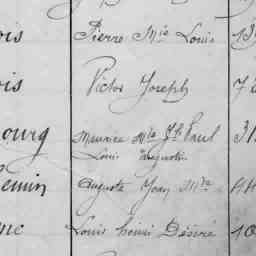 ois Pierre Mie Louis 13
ois Victor Joseph 72
ourg Maurice Mie Jh Paul 31
Louis Augustin
emin Auguste Jean Mie 44
nc Louis henri Désiré 10